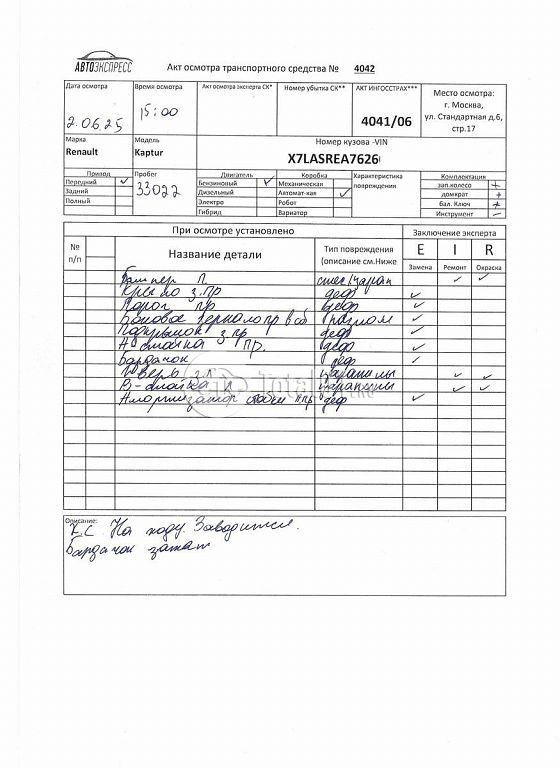 АВТОЭКСПРЕСС
Акт осмотра транспортного средства № 4042
Дата осмотра Время осмотра Акт осмотра эксперта СК* Номер убытка СК** АКТ ИНГОССТРАХ*** Место осмотра:
2.06.25 15:00 4041/06 г. Москва,
ул. Стандартная д.6,
стр.17
Марка Модель Номер кузова -VIN
Renault Kaptur X7LASREA7626
Привод Пробег Двигатель Коробка Характеристика повреждения Комплектация
Передний 33022 Бензиновый Механическая зап.колесо +
Задний Дизельный Автомат-кая домкрат +
Полный Электро Робот бал. Ключ +
Гибрид Вариатор Инструмент -
При осмотре установлено Заключение эксперта
№ п/п Название детали Тип повреждения (описание см.Ниже E I R
Замена Ремонт Окраска
Бампер П.
Крыло з.пр деф ✓
Порог пр деф ✓
Боковое зеркало пр в сб разлом ✓
Подкрылок з пр деф ✓
А стойка пр. деф ✓
Бардачок деф ✓
Дверь з.л царапины ✓ ✓
В-стойка л царапины ✓ ✓
Амортизатор стойки п пр деф ✓
Total
Описание:
На ходу. Заводится.
Бардачок зажат